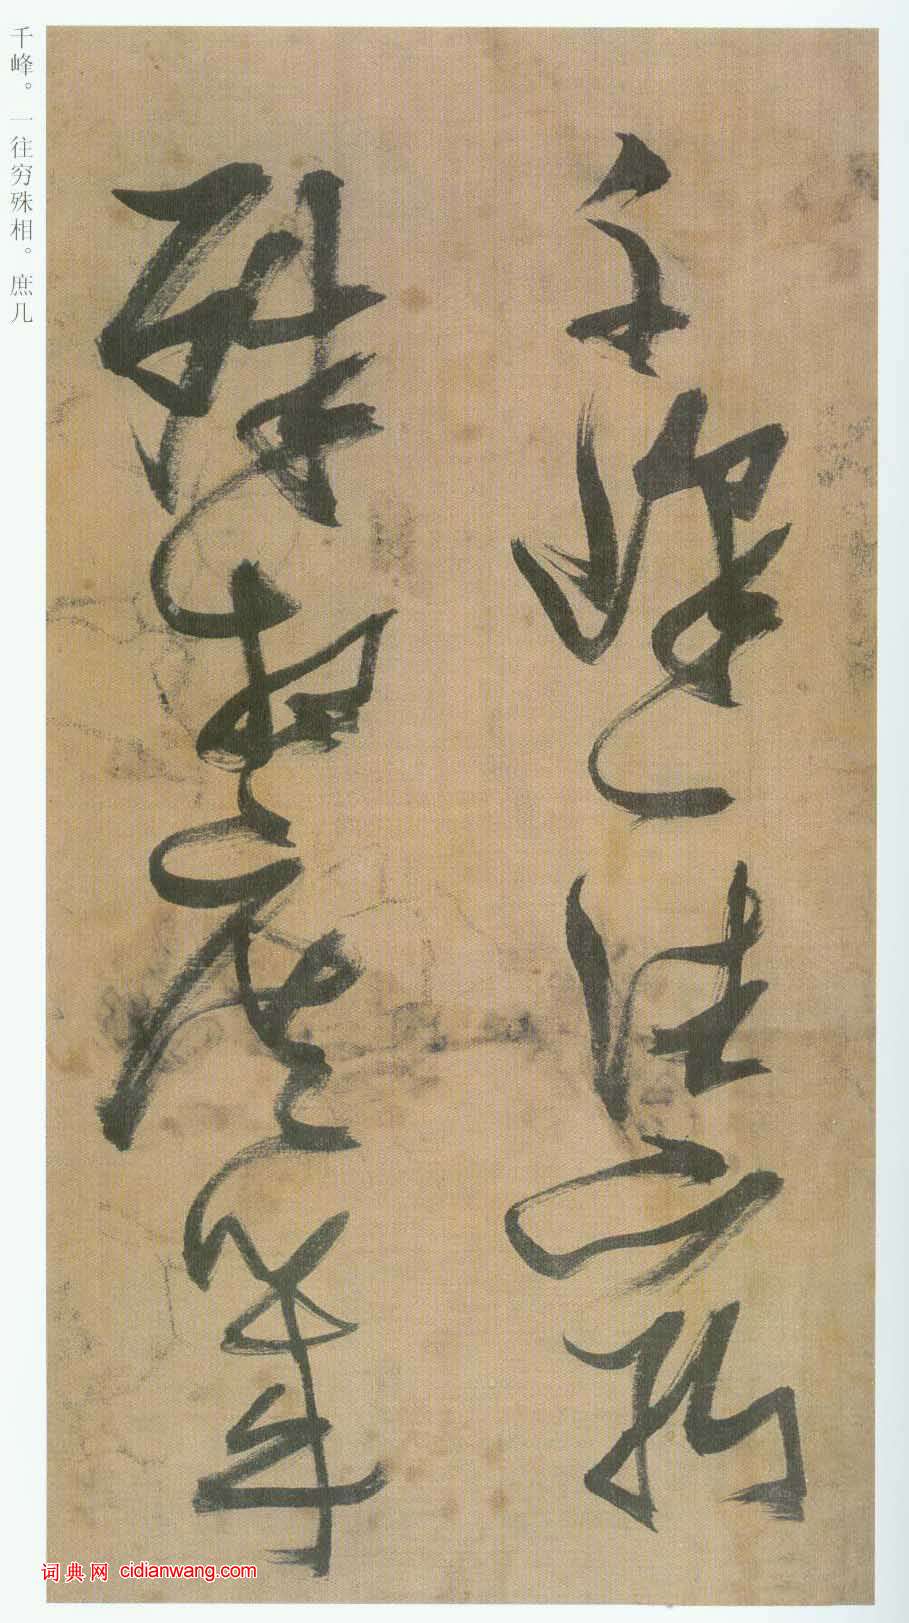 千峰。一往穷殊相。庶几
千峰一往窮
殊相庶幾
词典网 cidianwang.com